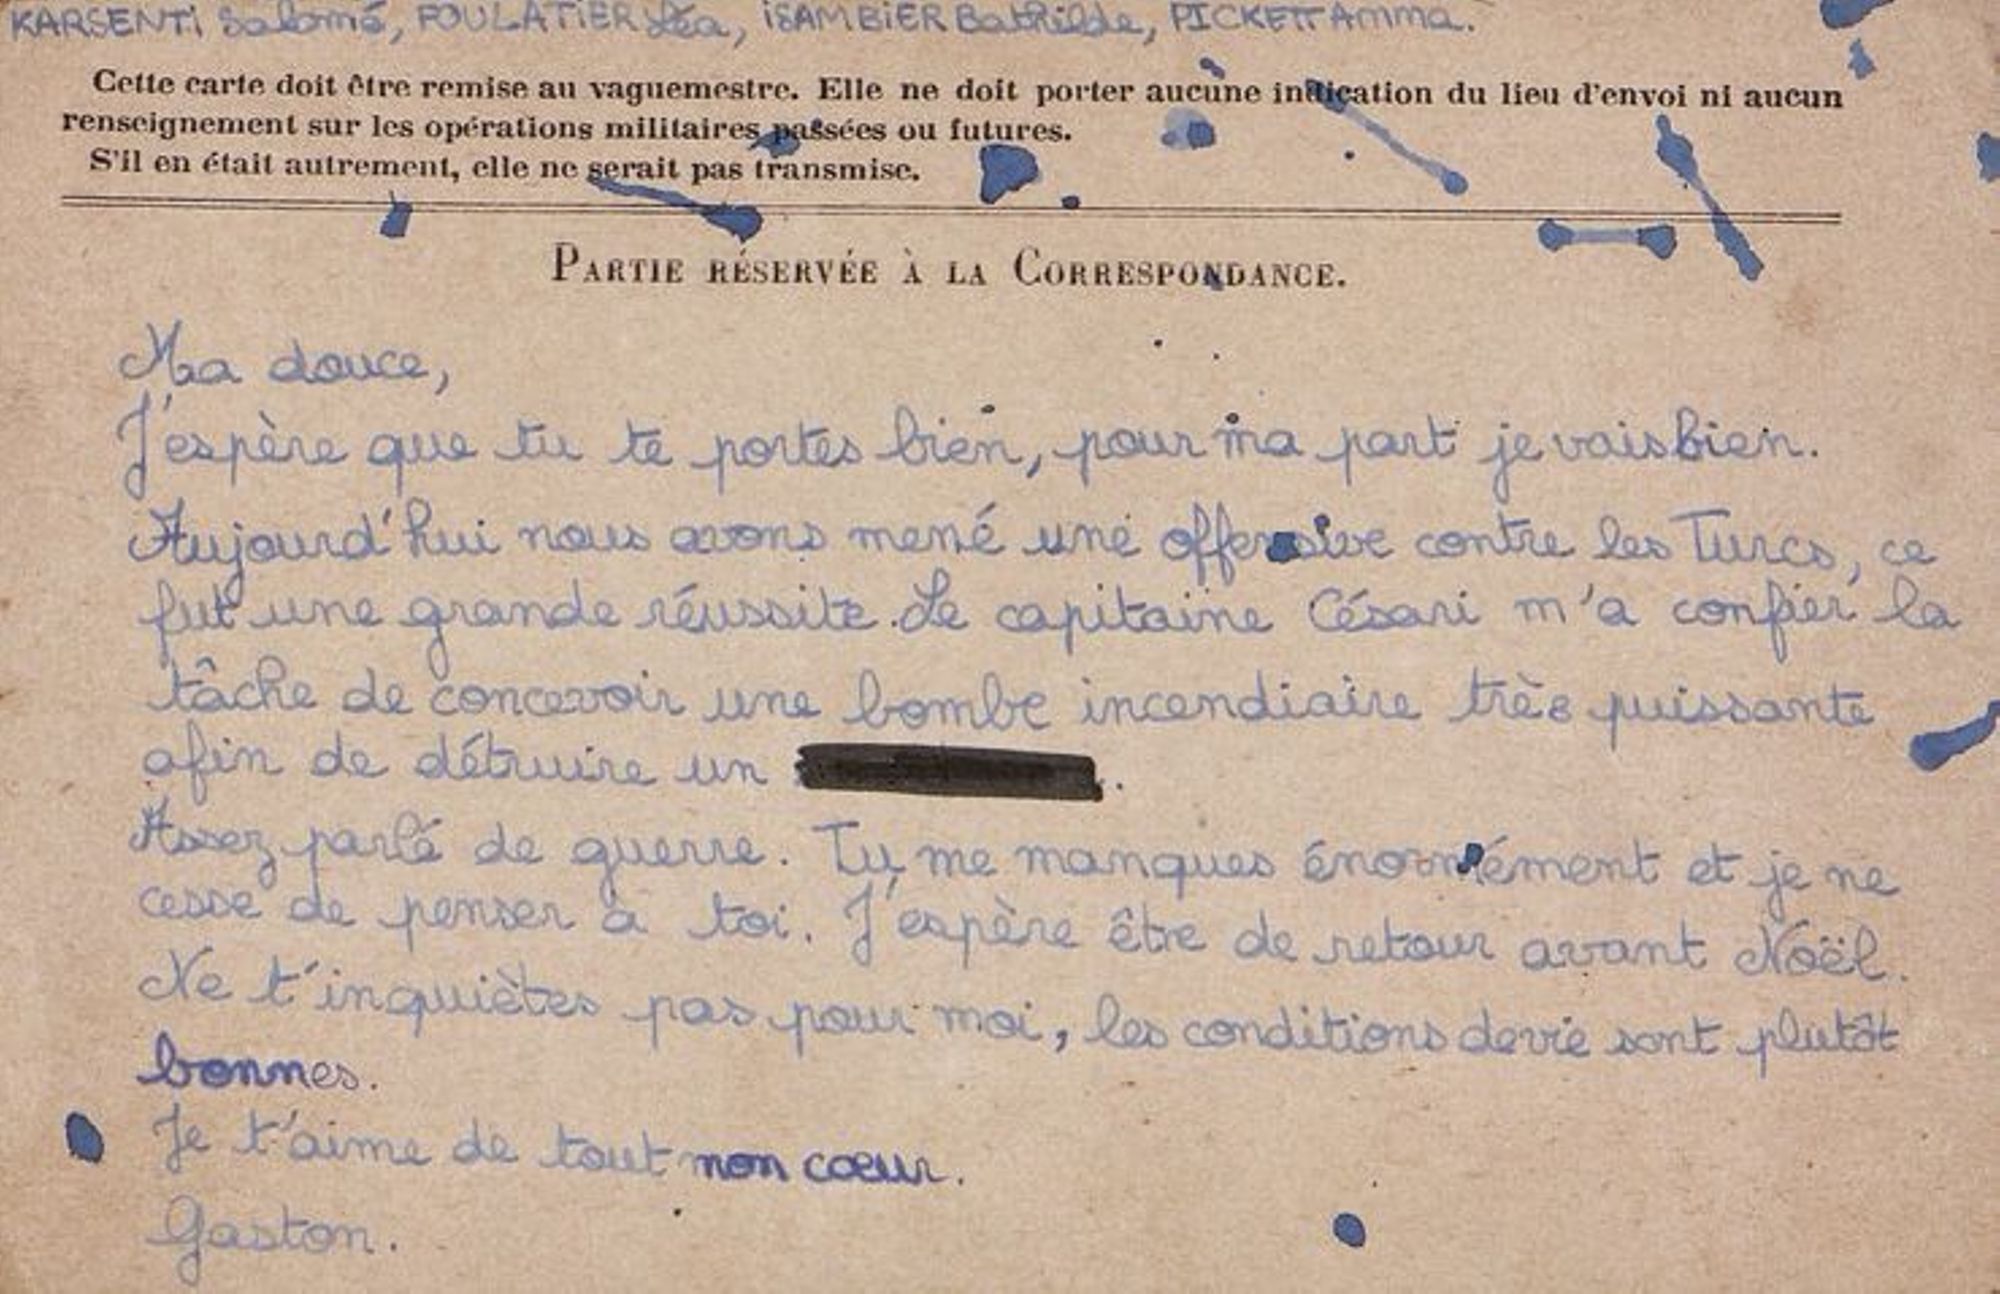 KARSENTi Salomé, FOULATiER Léa, iSAMBiER Bathilde, PICKETT Amma.
Cette carte doit être remise au vaguemestre. Elle ne doit porter aucune indication du lieu d'envoi ni aucun
renseignement sur les opérations militaires passées ou futures.
S'il en était autrement, elle ne serait pas transmise.
PARTIE RÉSERVÉE À LA CORRESPONDANCE.
Ma douce,
J'espère que tu te portes bien, pour ma part je vais bien.
Aujourd'hui nous avons mené une offensive contre les Turcs, ce
fut une grande réussite. Le capitaine Césari m'a confier la
tâche de concevoir une bombe incendiaire très puissante
afin de détruire un .
Assez parlé de guerre. Tu me manques énormément et je ne
cesse de penser à toi. J'espère être de retour avant Noël.
Ne t'inquiètes pas pour moi, les conditions de vie sont plutôt
bonnes.
Je t'aime de tout mon cœur.
Gaston.